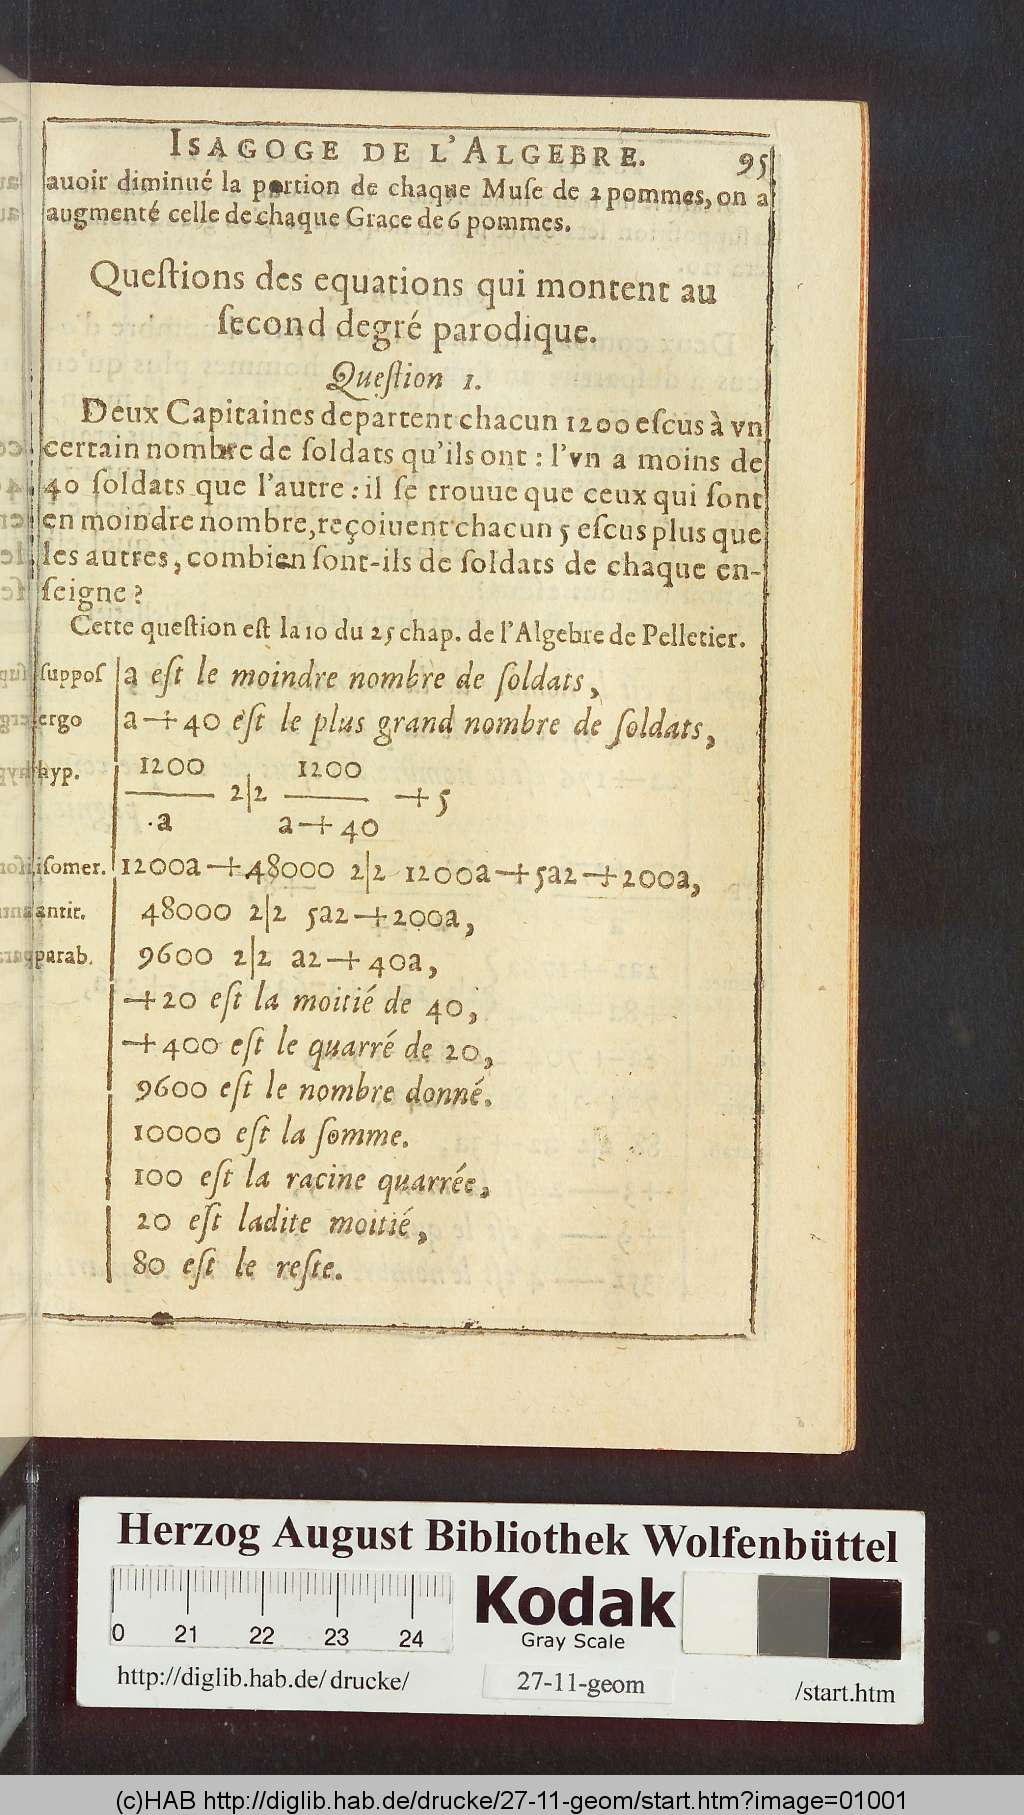 ISAGOGE DE L'ALGEBRE. 95
auoir diminué la portion de chaque Muſe de 2 pommes, on a
augmenté celle de chaque Grace de 6 pommes.
Queſtions des equations qui montent au
ſecond degré parodique.
Queſtion 1.
Deux Capitaines departent chacun 1200 eſcus à vn
certain nombre de ſoldats qu'ils ont : l'vn a moins de
40 ſoldats que l'autre : il ſe trouue que ceux qui ſont
en moindre nombre, reçoiuent chacun 5 eſcus plus que
les autres, combien ſont-ils de ſoldats de chaque en-
ſeigne ?
Cette queſtion eſt la 10 du 25 chap. de l'Algebre de Pelletier.
ſuppoſ a eſt le moindre nombre de ſoldats,
ergo a + 40 eſt le plus grand nombre de ſoldats,
1200 1200
hyp. —— 2|2 —— + 5
a a + 40
iſomer. 1200a + 48000 2|2 1200a + 5a2 + 200a,
antit. 48000 2|2 5a2 + 200a,
parab. 9600 2|2 a2 + 40a,
+ 20 eſt la moitié de 40,
+ 400 eſt le quarré de 20,
9600 eſt le nombre donné.
10000 eſt la ſomme.
100 eſt la racine quarrée,
20 eſt ladite moitié,
80 eſt le reſte.
Herzog August Bibliothek Wolfenbüttel
Kodak
Gray Scale
0 21 22 23 24
http://diglib.hab.de/drucke/ 27-11-geom /start.htm
(c)HAB http://diglib.hab.de/drucke/27-11-geom/start.htm?image=01001